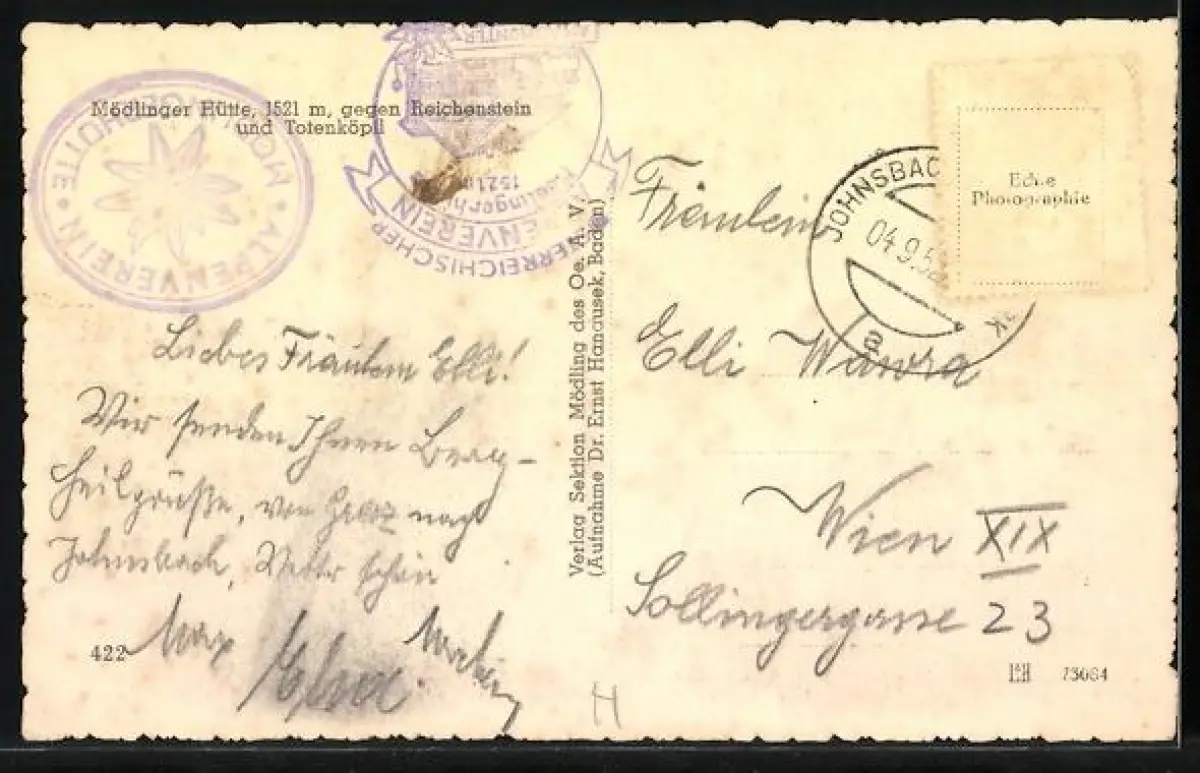 Mödlinger Hütte, 1521 m, gegen Reichenstein
und Totenköpfl
MÖDLINGERHÜTTE · ALPENVEREIN ·
ÖSTERREICHISCHER
ALPENVEREIN
Mödlingerhütte
1521 m
Liebes Fräulein Elli!
Wir senden Ihnen Berg-
heilgrüße, von nach
Johnsbach, Wetter schön
Max
422
Verlag Sektion Mödling des Oe. A. V.
(Aufnahme Dr. Ernst Hanausek, Baden)
JOHNSBACH
04.9.52
a
Echte
Photographie
Fräulein
Elli Wawra
Wien XIX
Sollingergasse 23
H
73064